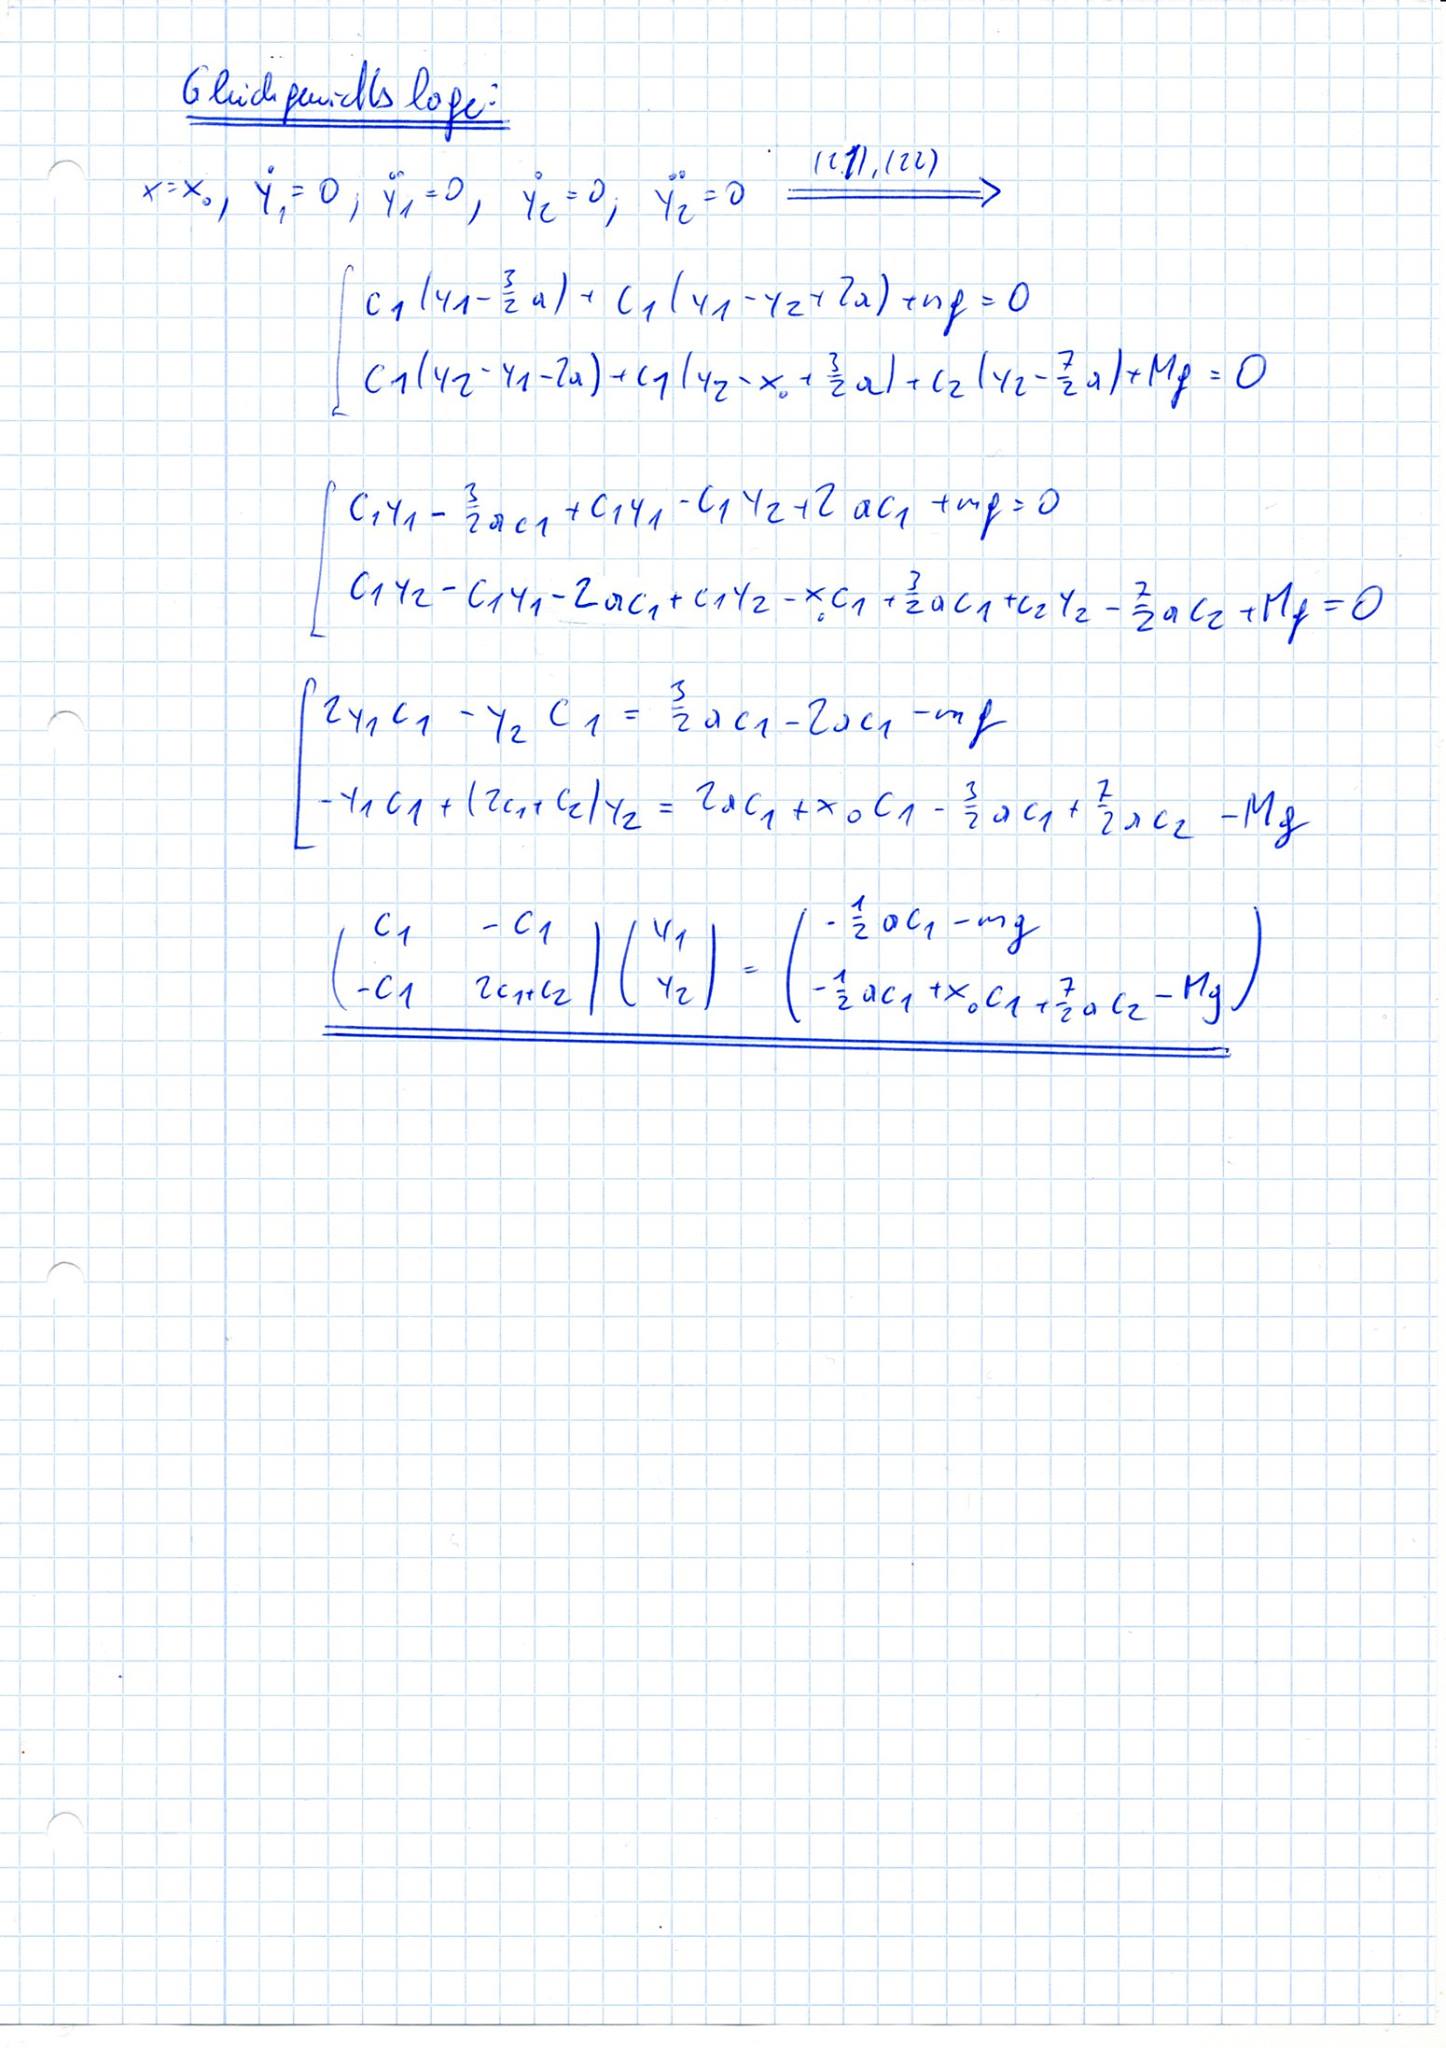 Gleichgewichtslage:
x=x₀, ẏ₁=0, ÿ₁=0, ẏ₂=0, ÿ₂=0 (21),(22) ⟹
c₁(y₁-3/2 a)+c₁(y₁-y₂+2a)+mg=0
c₁(y₂-y₁-2a)+c₁(y₂-x₀+3/2 a)+c₂(y₂-7/2 a)+Mg=0
c₁y₁-3/2 ac₁+c₁y₁-c₁y₂+2ac₁+mg=0
c₁y₂-c₁y₁-2ac₁+c₁y₂-x₀c₁+3/2 ac₁+c₂y₂-7/2 ac₂+Mg=0
2y₁c₁-y₂c₁=3/2 ac₁-2ac₁-mg
-y₁c₁+(2c₁+c₂)y₂=2ac₁+x₀c₁-3/2 ac₁+7/2 ac₂-Mg
( c₁ -c₁ ) ( y₁ ) = ( -1/2 ac₁-mg )
( -c₁ 2c₁+c₂ ) ( y₂ ) ( -1/2 ac₁+x₀c₁+7/2 ac₂-Mg )